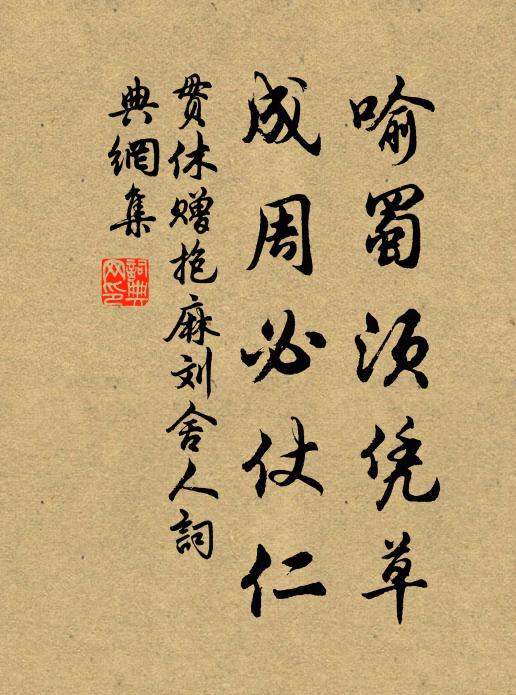 喻蜀须凭草
成周必仗仁
贯休赠抱麻刘舍人詞
典網集
詞典网印